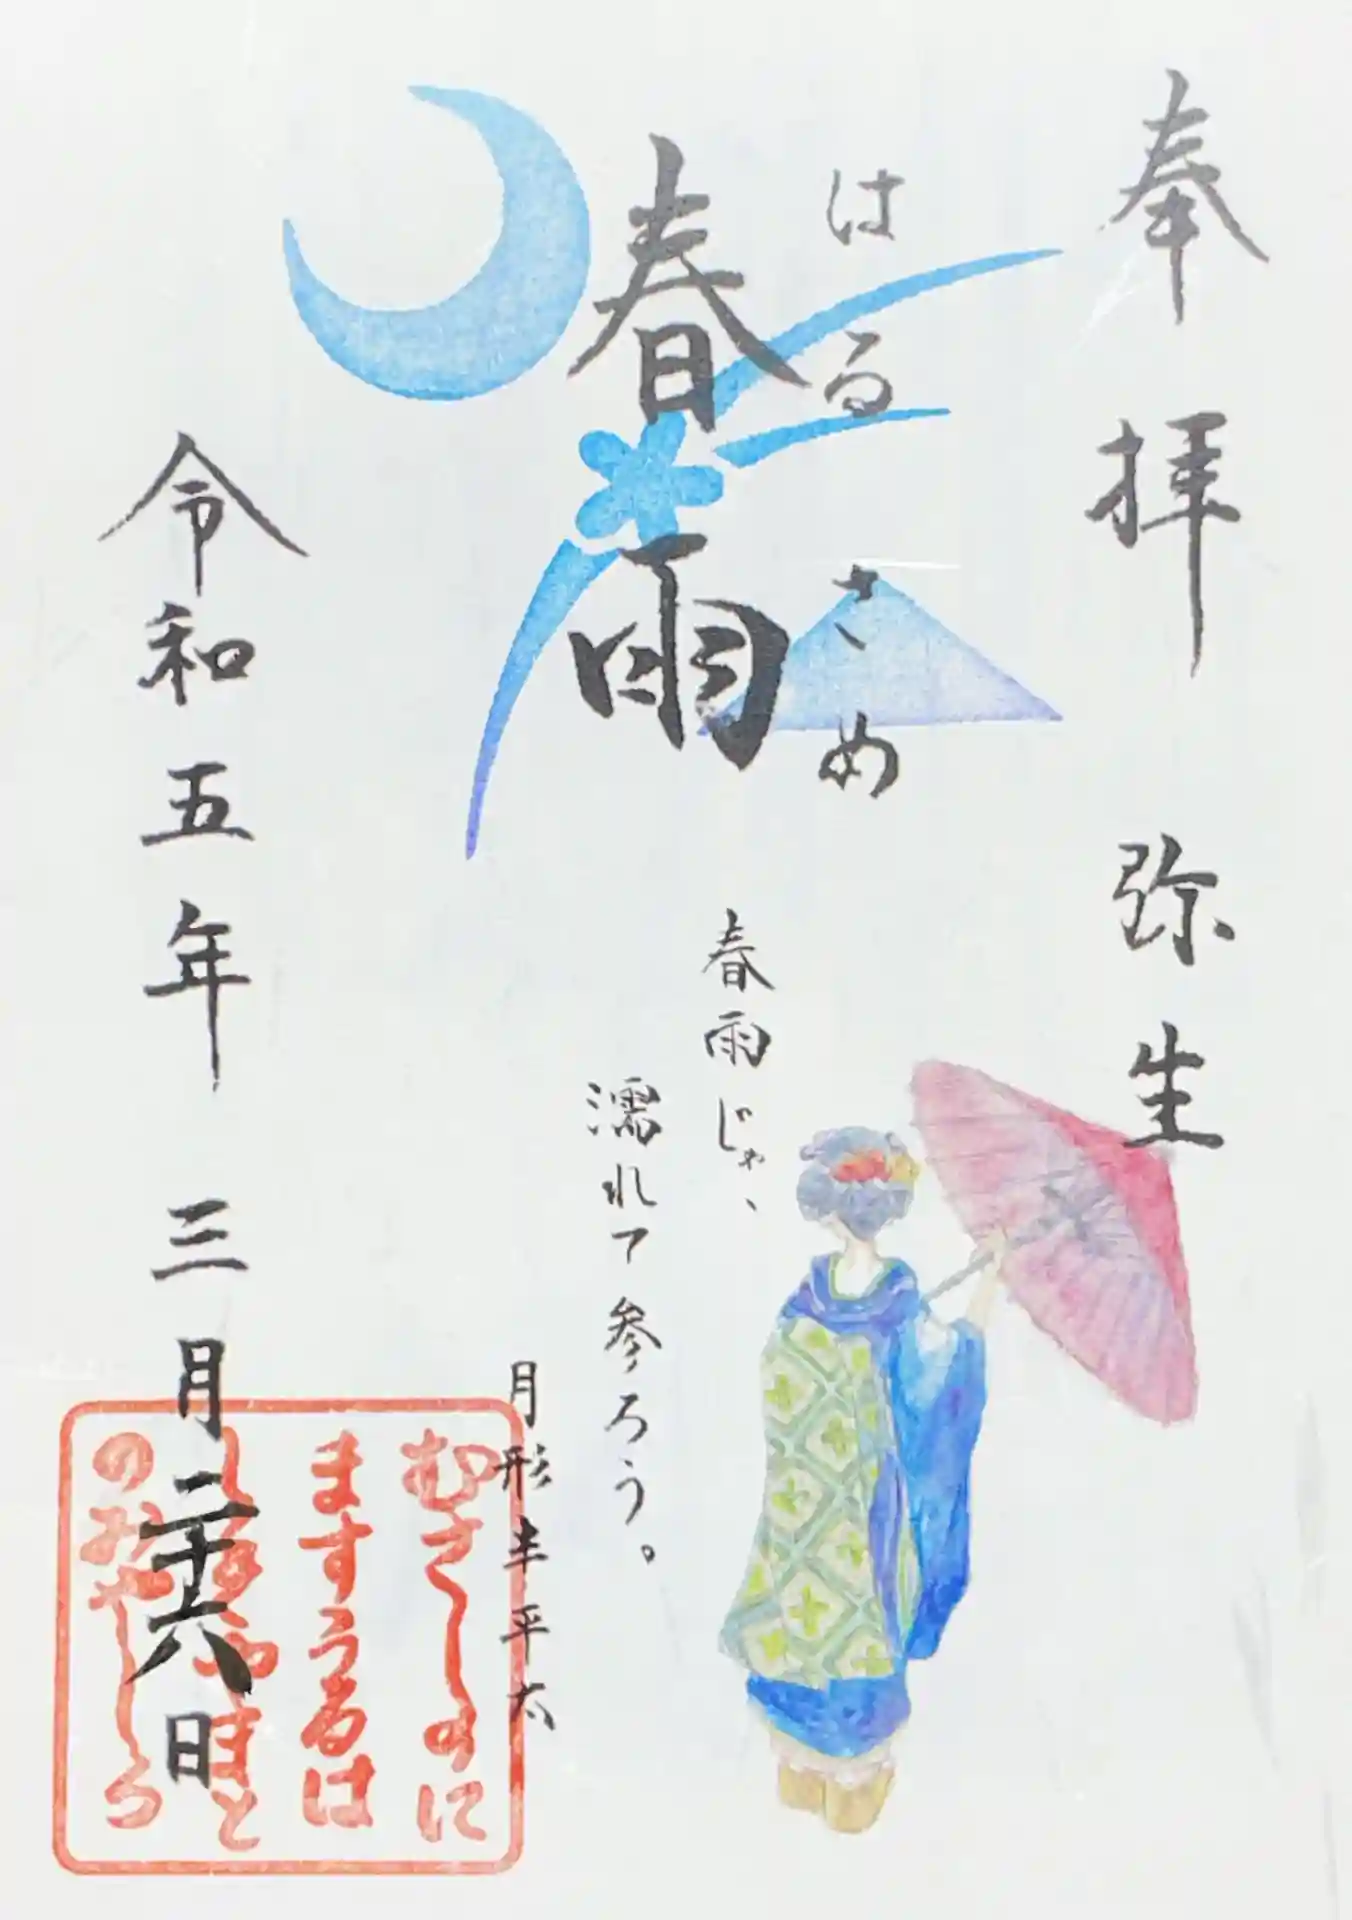 奉拝 弥生
はるさめ
春雨
春雨じゃ、
濡れて参ろう。
月形半平太
むさしのに
ますうるは
令和五年 三月二十六日